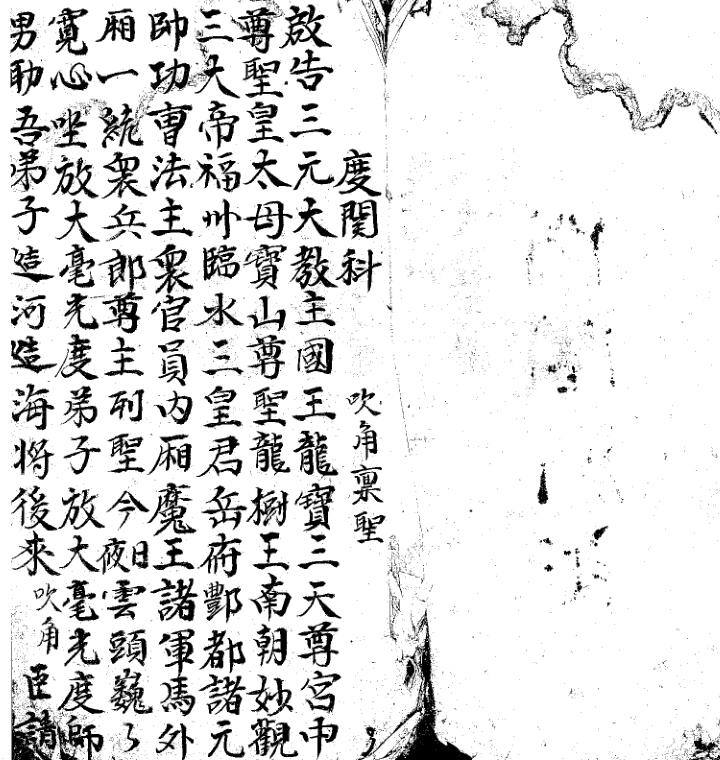 度関科 吹角稟聖
啟告三元大教主國王龍寶三天尊宮中
尊聖皇太母寶山尊聖龍樹王南朝妙觀
三大帝福州臨水三皇君岳府酆都諸元
帥功曹法主衆官員內廂魔王諸軍馬外
廂一統衆兵郎尊主列聖今夜日雲頭巍〻
寛心坐放大毫光度弟子放大毫光度師
男助吾弟子造河造海将後來 吹角 臣請